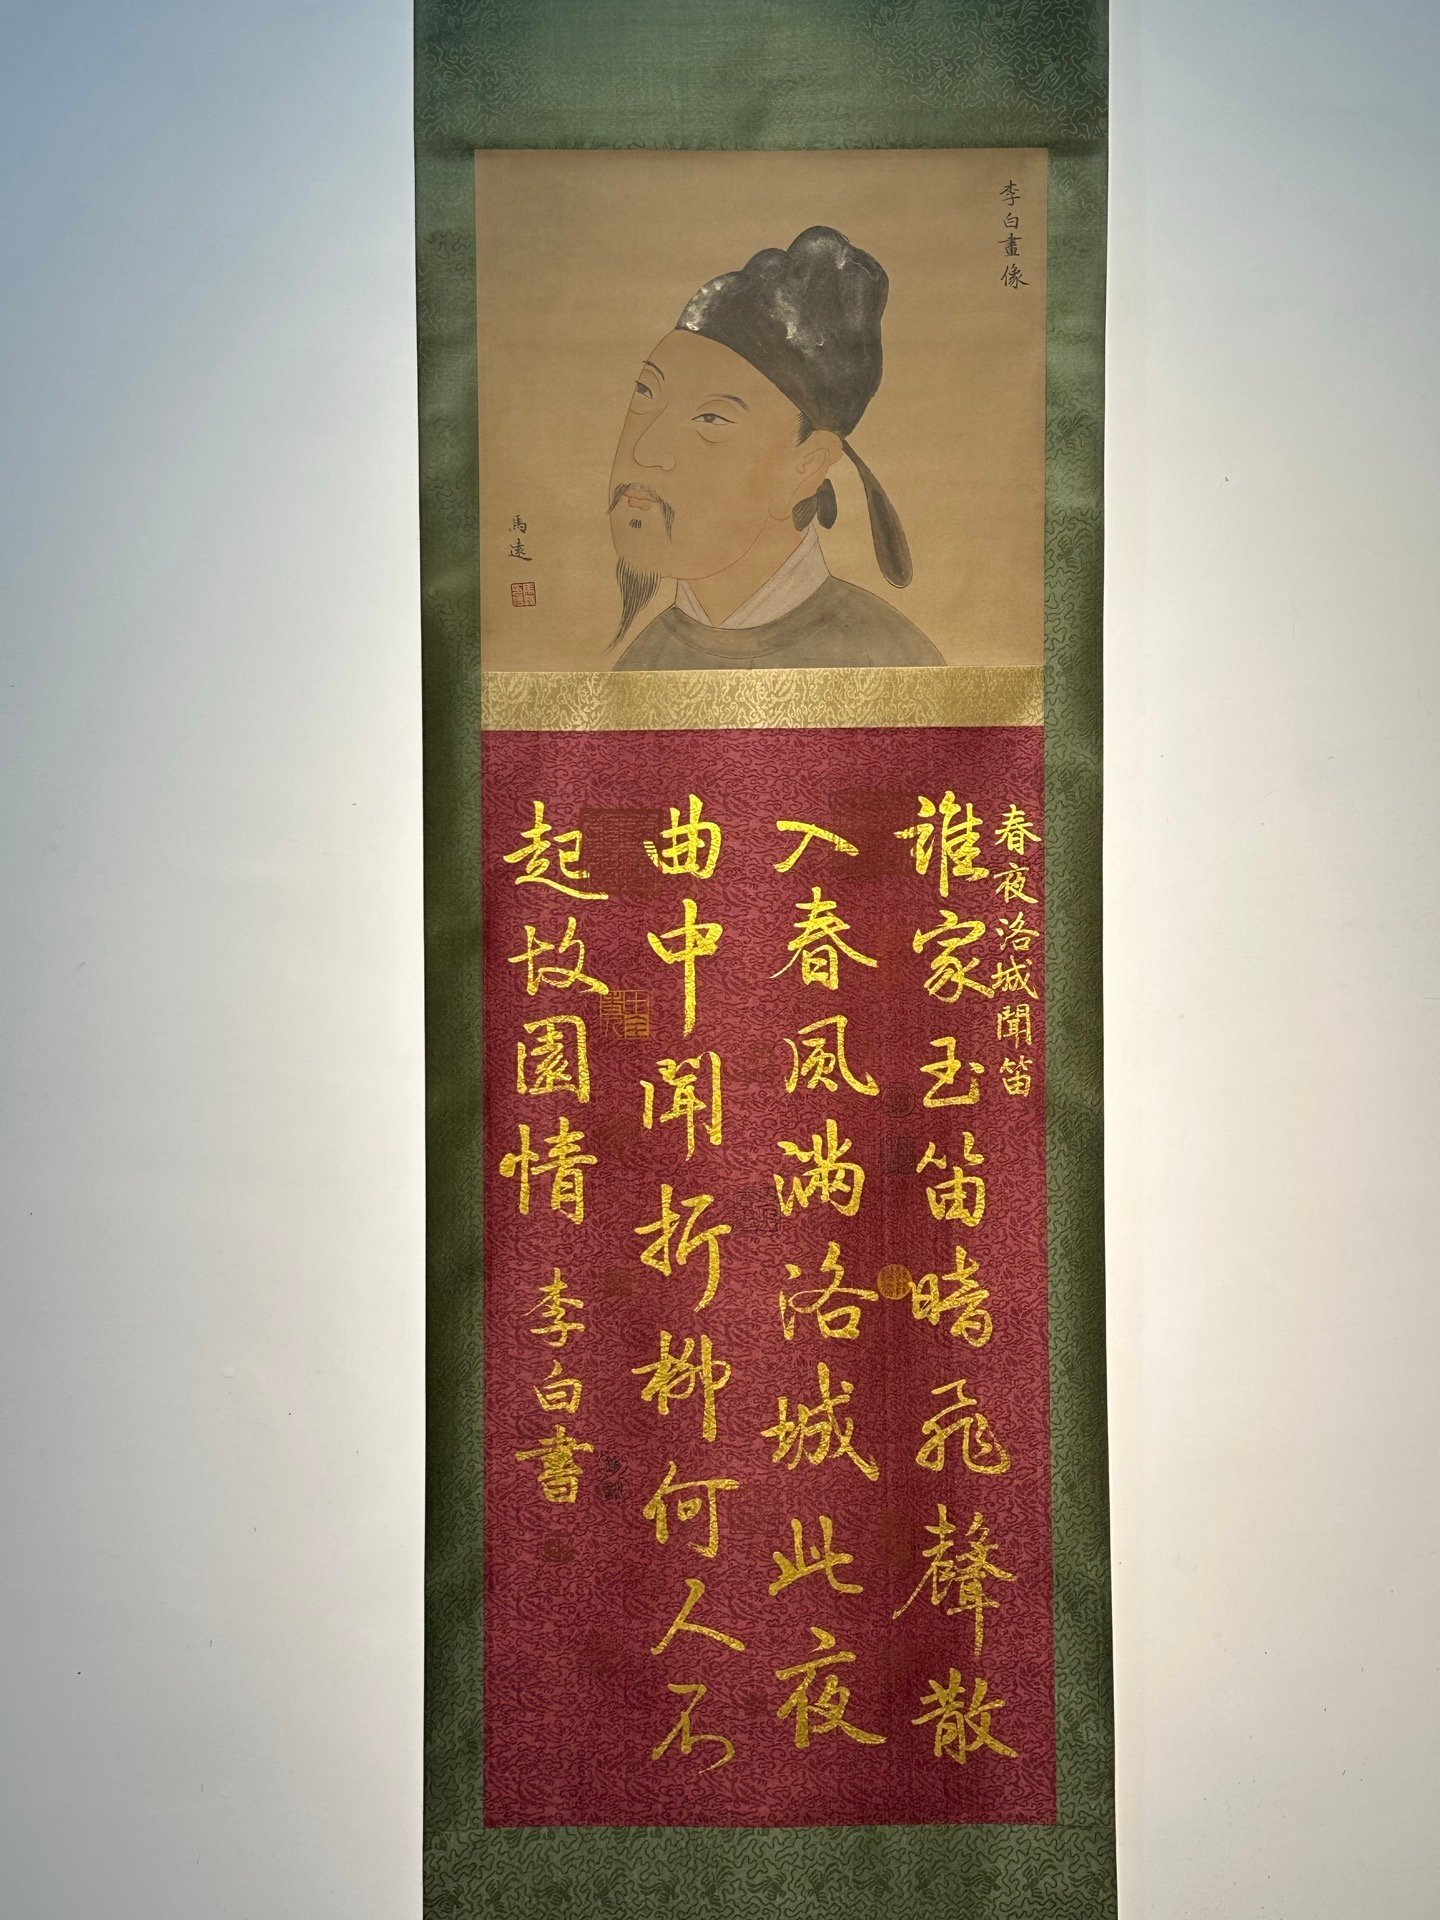 李白畫像
馬遠
春夜洛城聞笛
誰家玉笛暗飛聲散
入春風滿洛城此夜
曲中聞折柳何人不
起故園情 李白書